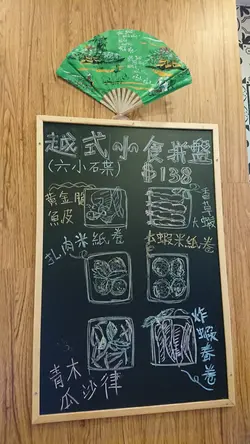 越式小食拼盤
(六小石碟)
$138
黃金
魚皮
香草
大蝦
扎肉米紙卷
大蝦米紙卷
青木
瓜沙律
炸蝦春卷